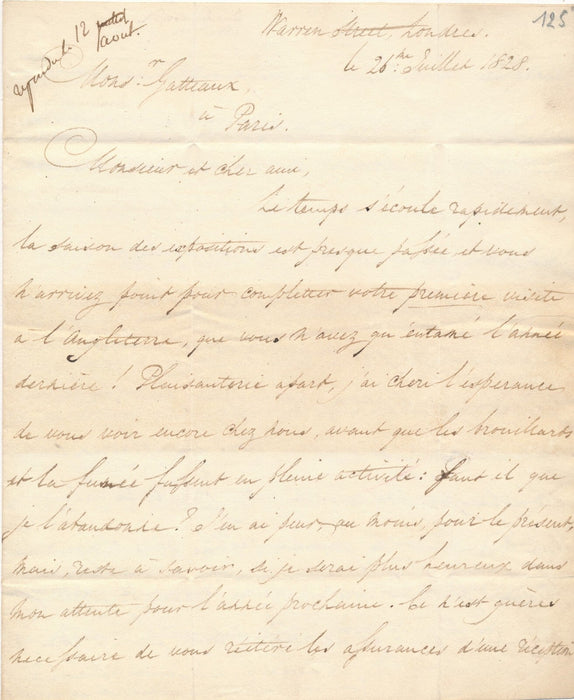 125
repondu le 12 août.
Warren Street, Londres.
le 26.me Juillet 1828.
Mons.r Gatteaux,
à
Paris.
Monsieur et cher ami,
Le temps s'écoule rapidement,
la saison des expositions est presque passée et vous
n'arrivez point pour completter votre première visite
a l'Angleterre, que vous n'avez qu'entamé l'année
dernière! Plaisanterie apart, j'ai cheri l'esperance
de vous voir encore chez nous, avant que les brouillards
et la fumée fussent en pleine activité: faut il que
je l'abandonne? J'en ai peur, au moins, pour le présent,
mais, reste à savoir, si je serai plus heureux dans
mon attente pour l'année prochaine. Ce n'est guères
necessaire de vous réitérer les assurances d'une réception